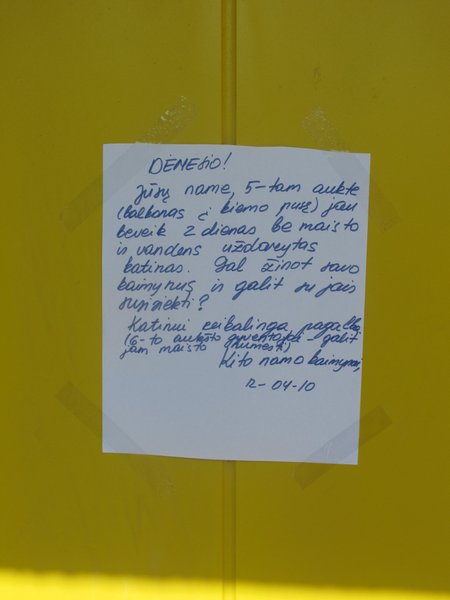 DĖMESIO!
Jūsų name, 5-tam aukte
(balkonas į kiemo pusę) jau
beveik 2 dienas be maisto
ir vandens uždarytas
katinas. Gal žinot savo
kaimynus ir galit su jais
susisiekti?
Katinui reikalinga pagalba,
(6-to aukšto gyventojai - galit
jam maisto numesti)
Kito namo kaimynai,
12-04-10